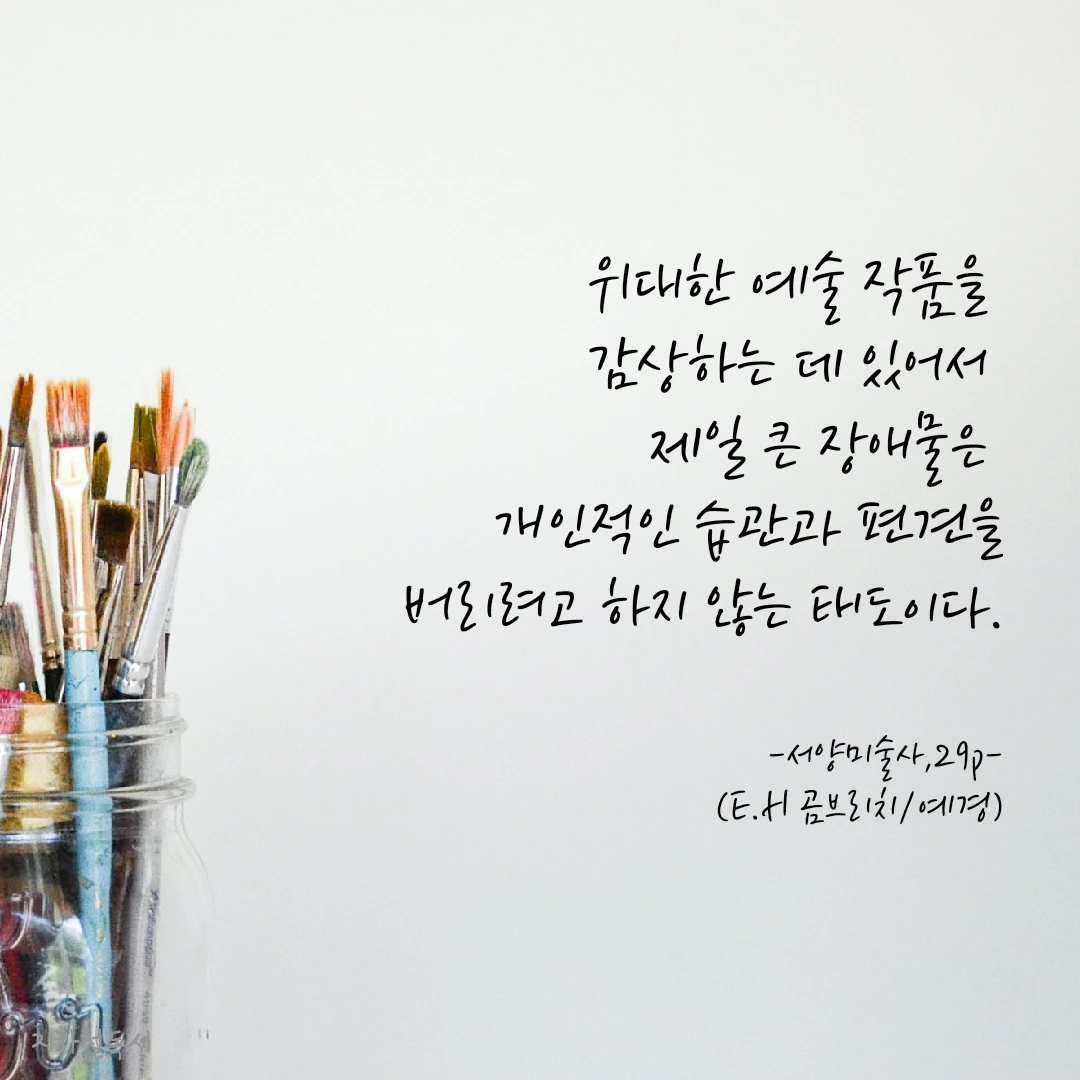 위대한 예술 작품을
감상하는 데 있어서
제일 큰 장애물은
개인적인 습관과 편견을
버리려고 하지 않는 태도이다.
-서양미술사,29p-
(E.H 곰브리치/예경)